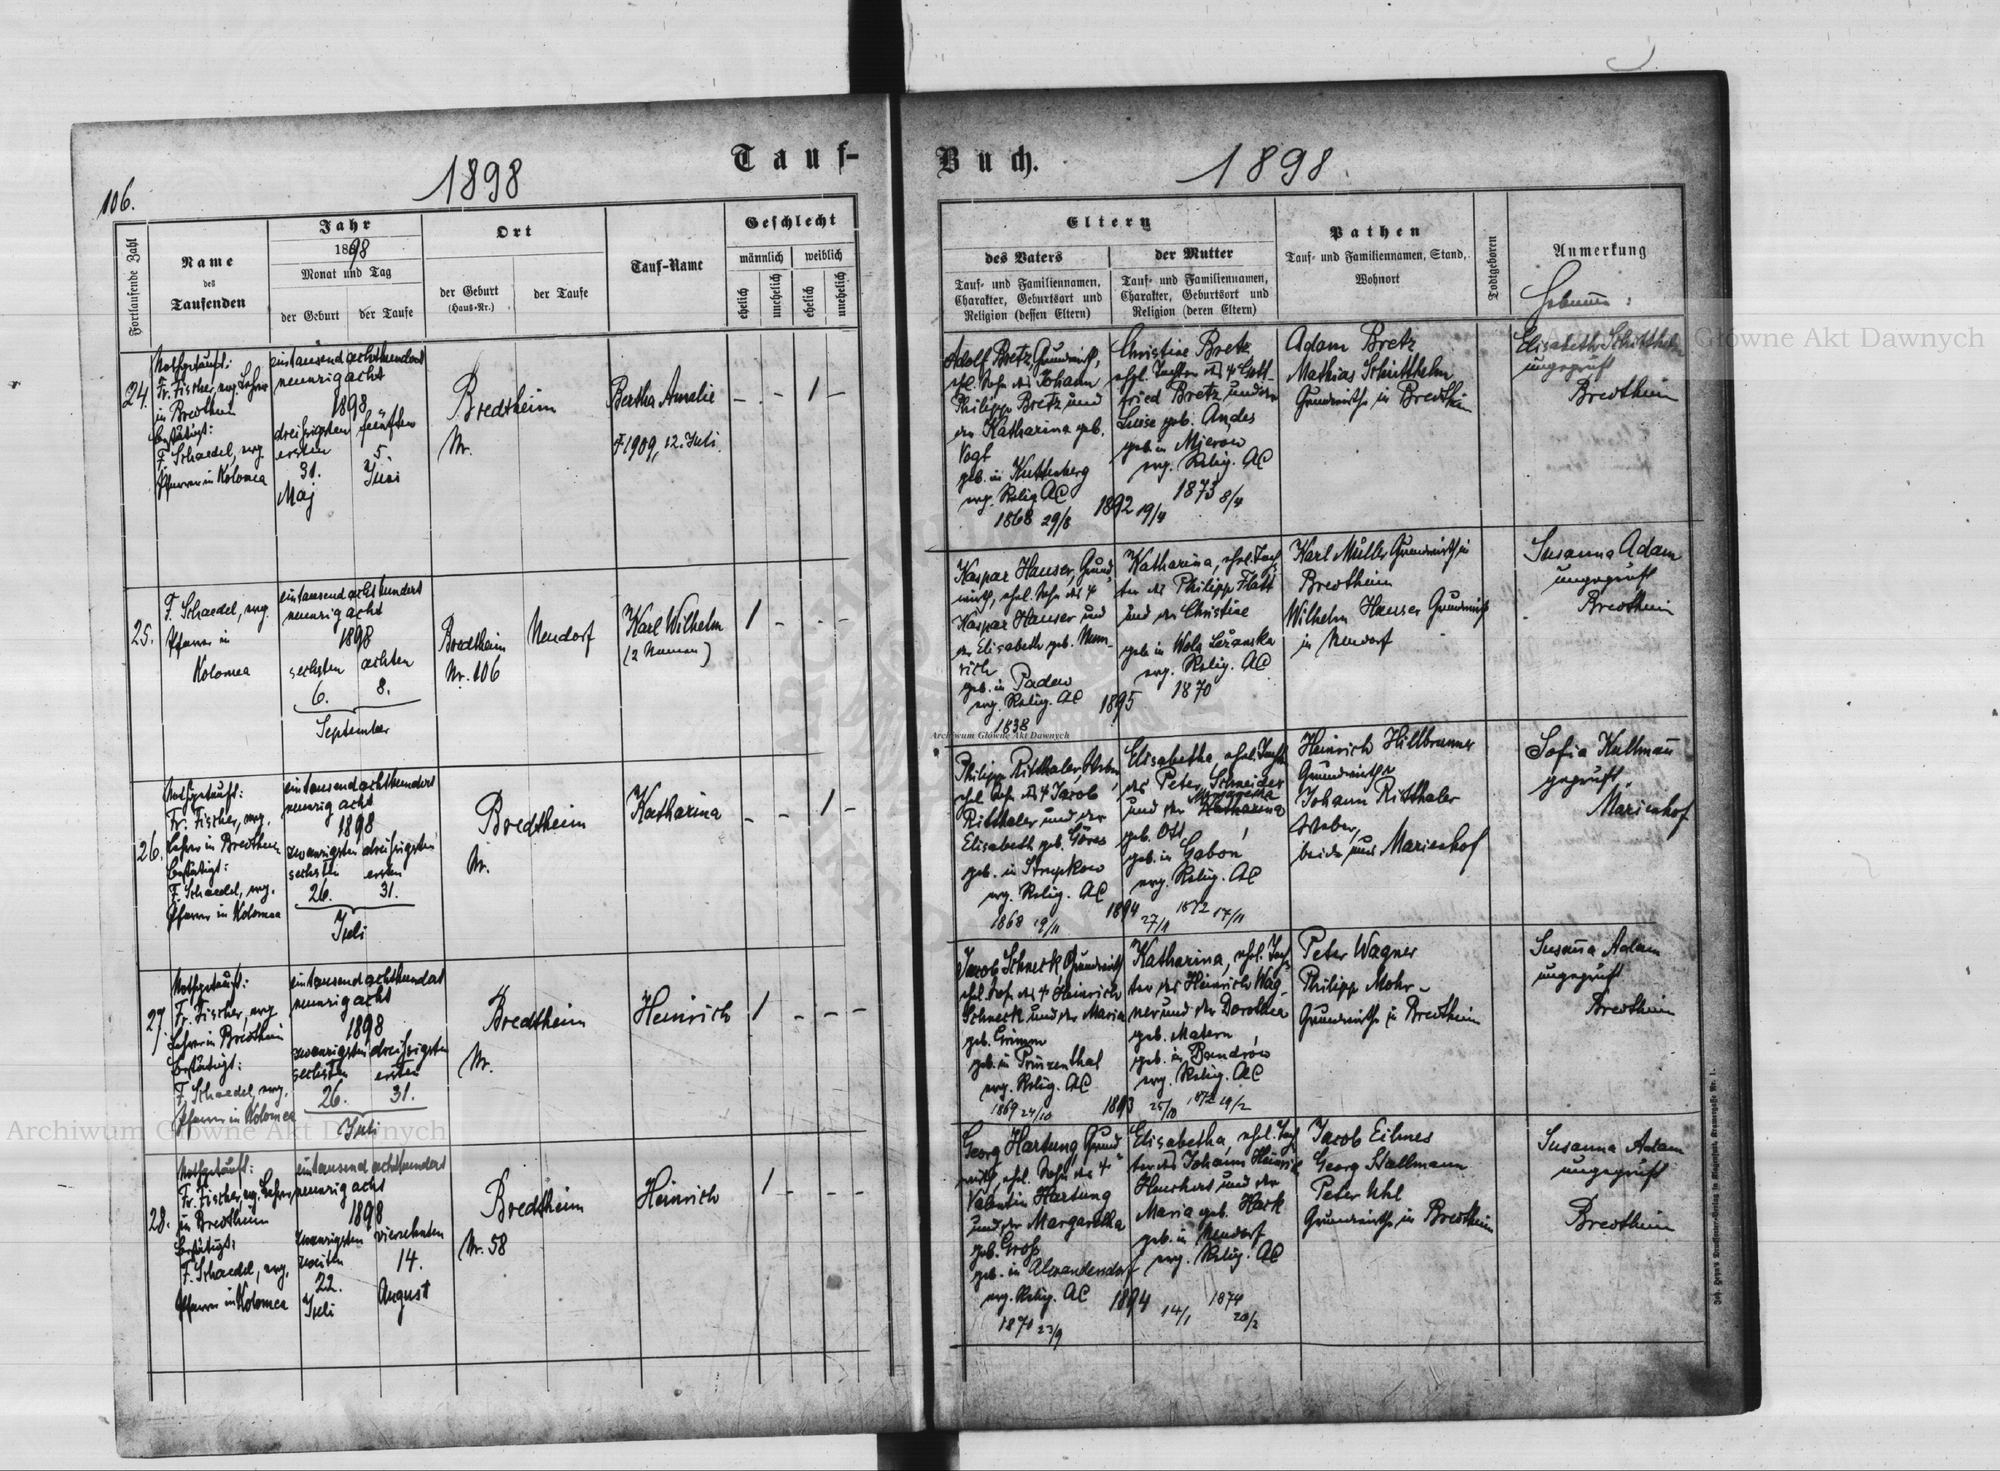 106.
1898
Tauf-
Fortlaufende Zahl
Name
des
Taufenden
Jahr
1898
Monat und Tag
der Geburt
der Taufe
Ort
der Geburt
(Haus-Nr.)
der Taufe
Tauf-Name
Geschlecht
männlich
weiblich
ehelich
unehelich
ehelich
unehelich
24.
Nothgetauft:
Fr. Fischer, evg. Lehrer
in Bredtheim
bestätigt:
F. Schaedel, evg.
Pfarrer in Kolomea
eintausendachthundert
neunzigacht
1898
dreißigsten fünften
ersten
31. 5.
Maj Juni
Bredtheim
Nr.
Bertha Amalie
† 1909, 12. Juli.
- - 1 -
25.
F. Schaedel, evg.
Pfarrer in
Kolomea
eintausendachthundert
neunzigacht
1898
sechsten achten
6. 8.
September
Bredtheim
Nr. 106
Neudorf
Karl Wilhelm
(2 Namen)
1 - - -
26.
Nothgetauft:
Fr. Fischer, evg.
Lehrer in Bredtheim
bestätigt:
F. Schaedel, evg.
Pfarrer in Kolomea
eintausendachthundert
neunzigacht
1898
zwanzigsten dreißigsten
sechsten ersten
26. 31.
Juli
Bredtheim
Nr.
Katharina
- - 1 -
27.
Nothgetauft:
Fr. Fischer, evg.
Lehrer in Bredtheim
bestätigt:
F. Schaedel, evg.
Pfarrer in Kolomea
eintausendachthundert
neunzigacht
1898
zwanzigsten dreißigsten
sechsten ersten
26. 31.
Juli
Bredtheim
Nr.
Heinrich
1 - - -
28.
Nothgetauft:
Fr. Fischer, evg. Lehrer
in Bredtheim
bestätigt:
F. Schaedel, evg.
Pfarrer in Kolomea
eintausendachthundert
neunzigacht
1898
zwanzigsten vierzehnten
zweiten
22. 14.
Juli August
Bredtheim
Nr. 58
Heinrich
1 - - -
Buch.
1898.
Eltern
des Vaters
Tauf- und Familiennamen,
Charakter, Geburtsort und
Religion (dessen Eltern)
der Mutter
Tauf- und Familiennamen,
Charakter, Geburtsort und
Religion (deren Eltern)
Pathen
Tauf- und Familiennamen, Stand,
Wohnort
Todtgeboren
Anmerkung
Hebamme:
Adolf Bretz, Grundwirth,
ehl. Sohn des Johann
Philipp Bretz und
der Katharina geb.
Vogt
geb. in Kuttenberg
evg. Relig. AC
1868 29/8
1892 19/4
Christine Bretz
ehel. Tochter des † Gott-
fried Bretz, und der
Luise geb. Andes
geb. in Mierow
evg. Relig. AC
1873 8/4
Adam Bretz
Mathias Schütthelm
Grundwirthe in Bredtheim
Elisabeth Schütthelm
ungeprüft
Bredtheim
Kaspar Hauser, Grund-
wirth, ehel. Sohn des †
Kaspar Hauser und
der Elisabeth geb. Mum-
rich
geb. in Padew
evg. Relig. AC
1838
1895
Katharina, ehel. Toch-
ter des Philipp Flatt
und der Christine
geb. in Wola Leżanska
evg. Relig. AC
1870
Karl Müller Grundwirth in
Bredtheim
Wilhelm Hauser Grundwirth
in Neudorf
Susanna Adam
ungeprüft
Bredtheim
Philipp Ritthaler, Weber,
ehel. Sohn des † Jacob
Ritthaler und der
Elisabeth geb. Göres
geb. in Smerekow
evg. Relig. AC
1868 19/11
1894 27/11
Elisabetha, ehel. Tochter
des Peter Schneider
und der Margaretha
Katharina
geb. Ott
geb. in Gaboń
evg. Relig. AC
1872 17/11
Heinrich Hillbrunner
Grundwirth
Johann Ritthaler
Weber,
beide aus Marienhof
Sofia Kullmann
geprüft,
Marienhof
Jacob Schneck Grundwirth
ehel. Sohn des † Heinrich
Schneck und der Maria
geb. Grimm
geb. in Prinzenthal
evg. Relig. AC
1869 24/10
1893 25/10
Katharina, ehel. Toch-
ter des Heinrich Wag-
ner und der Dorothea
geb. Matern
geb. in Bandrów
evg. Relig. AC
1872 19/2
Peter Wagner
Philipp Mohr -
Grundwirthe in Bredtheim
Susanna Adam
ungeprüft
Bredtheim
Georg Hartung, Grund-
wirth, ehel. Sohn des †
Valentin Hartung
und der Margaretha
geb. Groß
geb. in Alexandersdorf
evg. Relig. AC
1870 23/9
1894 14/1
Elisabetha, ehel. Toch-
ter des Johann Heinrich
und der
Maria geb. Hack
geb. in Neudorf
evg. Relig. AC
1874
20/2
Jacob Eilmes
Georg Stallmann
Peter Uhl
Grundwirthe in Bredtheim
Susanna Adam
ungeprüft
Bredtheim
Archiwum Główne Akt Dawnych
Główne Akt Dawnych
Archiwum Główne Akt Dawnych